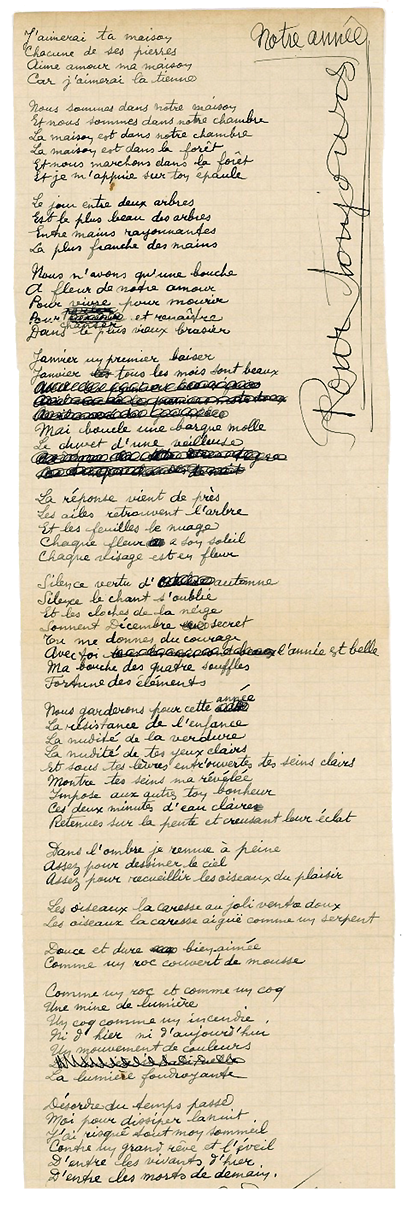 Notre année
Pour toujours
J'aimerai ta maison
Chacune de ses pierres
Aime amour ma maison
Car j'aimerai la tienne
Nous sommes dans notre maison
Et nous sommes dans notre chambre
La maison est dans notre chambre
La maison est dans la forêt
Et nous marchons dans la forêt
Et je m'appuie sur ton épaule
Le jour entre deux arbres
Est le plus beau des arbres
Entre mains rayonnantes
La plus franche des mains
Nous n'avons qu'une bouche
A fleur de notre amour
Pour vivre pour mourir
Pour chanter et renaître
Dans le plus vieux brasier
Janvier un premier baiser
Janvier tous les mois sont beaux
Mai boucle une barque molle
Le duvet d'une veilleuse
La réponse vient de près
Les ailes retrouvent l'arbre
Et les feuilles le nuage
Chaque fleur a son soleil
Chaque visage est en fleur
Silence vertu d'automne
Silence le chant s'oublie
Et les cloches de la neige
Sonnent Décembre secret
Tu me donnes du courage
Avec toi l'année est belle
Ma bouche des quatre souffles
Fortune des éléments
Nous garderons pour cette année
La résistance de l'enfance
La nudité de la verdure
La nudité de tes yeux clairs
Et sous tes lèvres entr'ouvertes tes seins clairs
Montre tes seins ma révélée
Impose aux autres ton bonheur
Ces deux minutes d'eau claire
Retenues sur la pente et creusant leur éclat
Dans l'ombre je remue à peine
Assez pour dessiner le ciel
Assez pour recueillir les oiseaux du plaisir
Les oiseaux la caresse au joli ventre doux
Les oiseaux la caresse aiguë comme un serpent
Douce et dure bien aimée
Comme un roc couvert de mousse
Comme un roc et comme un coq
Une mine de lumière
Un coq comme un incendie
Ni d'hier ni d'aujourd'hui
Un mouvement de couleurs
La lumière foudroyante
Désordre du temps passé
Moi pour dissiper la nuit
J'ai risqué tout mon sommeil
Contre un grand rêve et l'éveil
D'entre les vivants d'hier
D'entre les morts de demain.